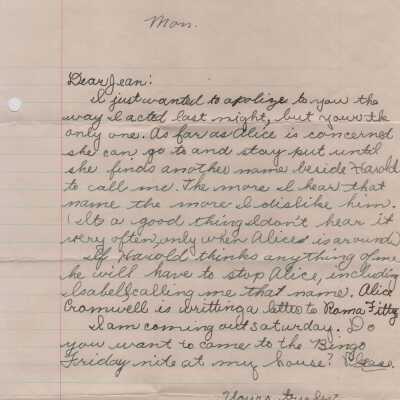 Mon.
Dear Jean:
I just wanted to apolize to you the
way I acted last night, but your the
only one. As far as Alice is concerned
she can go to and stay put until
she finds another name beside Harold
to call me. The more I hear that
name the more I dislike him.
(Its a good thing I don't hear it
very often, only when Alice is around)
If Harold thinks anything of me
he will have to stop Alice, including
Isabell, calling me that name. Alice
Cromwell is writting a letter to Roma Fitty
I am coming out Saturday. Do
you want to come to the Bingo
Friday nite at my house? Please.
Yours truly